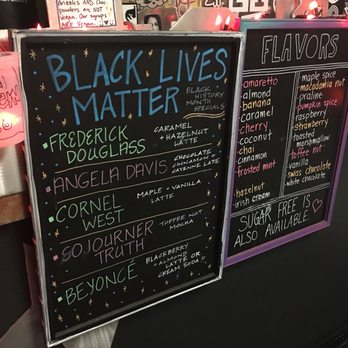 POWDERS ARE NOT
VEGAN. OUR SYRUPS
ARE VEGAN.
BLACK LIVES
MATTER
BLACK
HISTORY
MONTH
SPECIALS
FREDERICK
DOUGLASS
CARAMEL
+ HAZELNUT
LATTE
ANGELA DAVIS
CHOCOLATE
CINNAMON +
CAYENNE LATTE
CORNEL
WEST
MAPLE + VANILLA
LATTE
SOJOURNER
TRUTH
TOFFEE NUT
MOCHA
BEYONCÉ
BLACKBERRY
+ ALMOND
LATTE OR
CREAM SODA!!
FLAVORS
amaretto
almond
banana
caramel
cherry
coconut
chai
cinnamon
frosted mint
hazelnut
irish cream
maple spice
macadamia nut
praline
pumpkin spice
raspberry
strawberry
toasted
marshmallow
toffee nut
vanilla
swiss chocolate
white chocolate
SUGAR FREE IS
ALSO AVAILABLE